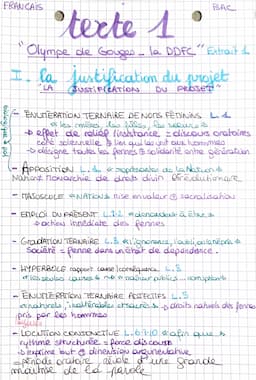 FRANCAIS BAC
texte 1
"Olympe de Gouges - la DDFC" Extrait 1
I - la justification du projet
"LA JUSTIFICATION DU PROJET"
- ENUMERATION TERNAIRE DE NOMS FÉMININS L.1
"les mères, les filles, les soeurs"
→ effet de relief/insistance = discours oratoires
côté solennelle & lien qui les unit aux hommes
→ désigne toutes les femmes & solidarité entre génération
- APPOSITION L.1 "représentantes de la Nation"
Nation monarchie de droits divin révolutionnaire
- MAJUSCULE "NATION" mise en valeur & sacralisation
- EMPLOI DU PRÉSENT L.1.2 "demandent à être"
→ action immédiate des femmes
- GRADATION TERNAIRE L.2 "l'ignorance, l'oubli, ou le mépris"
Société = femme dans un état de dépendance.
- HYPERBOLE rapport cause/conséquence L.3
"les seules causes" "malheurs publics"
- ENUMERATION TERNAIRE ADJECTIFS L.5
"naturels, inaltérables et sacrés" → droits naturels des femmes
pris par les hommes
- LOCUTION CONJONCTIVE L.6.7.10 "afin que"
rythme structurée = force discours
→ exprime but & dimension argumentative
= période oratoire, révèle d'une grande
maîtrise de la parole